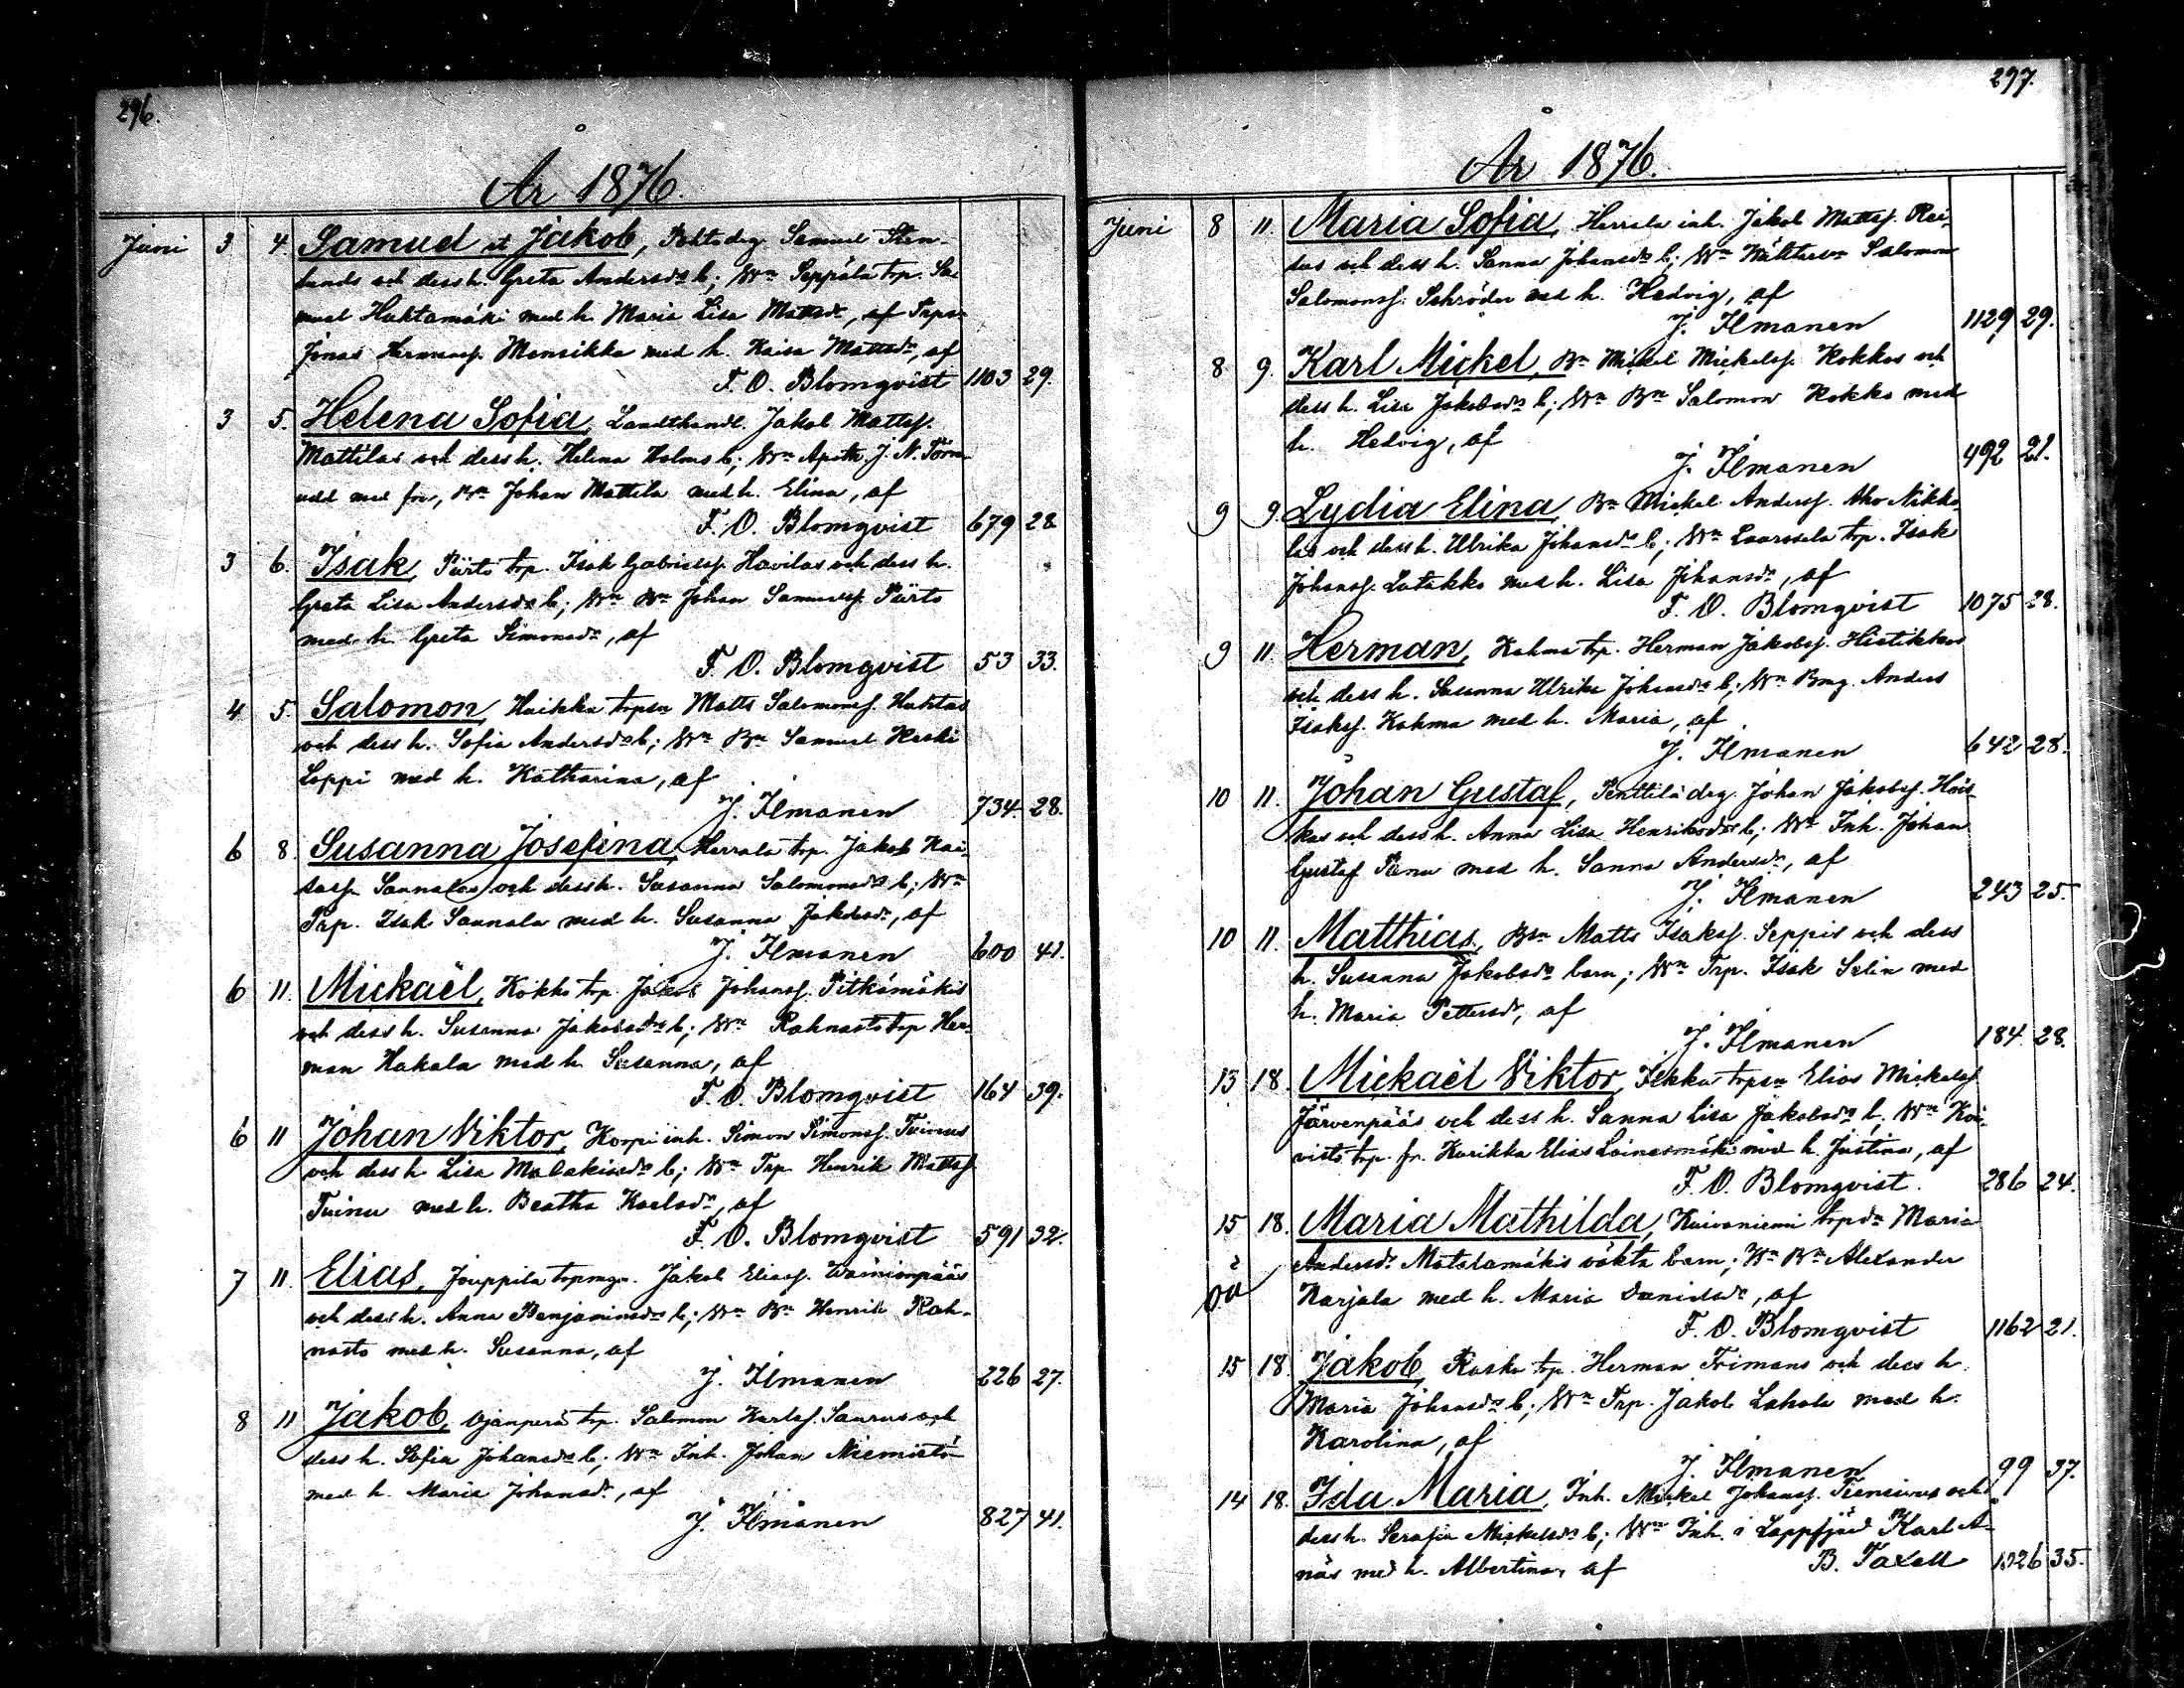 296.
År 1876.
Juni 3 4. Samuel et Jakob, Pohto drg. Samuel Sten-
lunds och dess h. Greta Andersdr b; Wn Seppälä trp. Sa-
muel Huhtamäki med h. Maria Lisa Mattsdr, af Trpsn
Jonas Hermanss. Mansikka med h. Kaisa Mattsdr, af
F. O. Blomqvist 1103 29.
3 5. Helena Sofia, Landthandl. Jakob Mattss.
Mattilas och dess h. Helena Holms b; Wn Apoth. J. N. Törn-
udd med fru, Bn Johan Mattila med h. Elina, af
F. O. Blomqvist 679 28
3 6. Isak, Piirto trp. Isak Gabrielss. Havilas och dess h.
Greta Lisa Andersdr b; Wn Bn Johan Samuelss. Piirto
med h. Greta Simonsdr, af
F. O. Blomqvist 53 33.
4 5. Salomon, Haikka trpsn Matts Salomonss. Huhtas
och dess h. Sofia Andersdr b; Wn Bn Samuel Heski
Loppi med h. Katharina, af
J. Ilmanen 734. 28.
6 8. Susanna Josefina, Herrala trp. Jakob Kai-
sass. Saunalas och dess h. Susanna Salomonsdr b; Wn
Trp. Isak Saunala med h. Susanna Jakobsdr, af
J. Ilmanen 600 41.
6 11. Mickaël, Kokko trp. Jakob Johanss. Pitkämäkis
och dess h. Susanna Jakobsdr b; Wn Rahnasto trp Her-
man Hakala med h. Susanna, af
F. O. Blomqvist 164 39.
6 11 Johan Viktor, Korpi inh. Simon Simonss. Tuinus
och dess h Lisa Malakiasdr b; Wn Trp. Henrik Mattss.
Tuinu med h. Beatha Karlsdr, af
F. O. Blomqvist 591 32.
7 11. Elias, Jouppila trpmgn. Jakob Eliass. Wäinionpääs
och dess h. Anna Benjaminsdr b; Wn Bn Henrik Rah-
nasto med h. Susanna, af
J. Ilmanen 226 27.
8 11 Jakob, Ojanperä trp. Salomon Karlss. Saurus och
dess h. Sofia Johansdr b; Wn Inh. Johan Niemistö
med h. Maria Johansdr, af
J. Ilmanen 827 41.
297.
År 1876.
Juni 8 11. Maria Sofia, Herrala inh. Jakob Mattss. Rei-
sas och dess h. Sanna Johansdr b; Wn Salomon
Salomonss. Schröder med h. Hedvig, af
J. Ilmanen 1129 29.
8 9. Karl Mickel, Bn Mickel Mickelss. Kokkos och
dess h. Lisa Jakobsdr b; Wn Bn Salomon Kokko med
h. Hedvig, af
J. Ilmanen 492 21.
9 9. Lydia Elina, Bn Mickel Anderss. Aho Nikko-
las och dess h. Ulrika Johansdr b; Wn Laurosela trp. Isak
Johanss. Latukka med h. Lisa Johansdr, af
F. O. Blomqvist 1075 28.
9 11. Herman, Kahma trp. Herman Jakobss. Hietikkos
och dess h. Susanna Ulrika Johansdr b; Wn Bmg. Anders
Isakss. Kahma med h. Maria, af
J. Ilmanen 642 28.
10 11. Johan Gustaf, Penttilä drg. Johan Jakobss. Höis-
kos och dess h. Anna Lisa Henriksdr b; Wn Inh. Johan
Gustaf Panu med h. Sanna Andersdr, af
J. Ilmanen 243 25.
10 11. Matthias, Bsn Matts Isakss. Seppis och dess
h. Susanna Jakobsdr barn; Wn Trp. Isak Selin med
h. Maria Pettersdr, af
J. Ilmanen 184 28.
13 18. Mickaël Viktor, Pekka trpsn Elias Mickelss.
Järvenpääs och dess h. Sanna Lisa Jakobsdr b. Wn Koi-
visto trp. fr. Kurikka Elias Loinasmäki med h. Justina, af
F. O. Blomqvist. 286 24.
15 18. Maria Mathilda, Kuivaniemi trpdr Maria
Andersdr Matalamäkis oäkta barn; Wn Bn Alexander
oä Karjala med h. Maria Danielsdr, af
F. O. Blomqvist 1162 21.
15 18. Jakob, Raske trp. Herman Frimans och dess h.
Maria Johansdr b; Wn Trp. Jakob Lahola med h.
Karolina, af
J. Ilmanen 99 37.
14 18. Ida Maria, Inh. Mickel Johanss. och
dess h. Serafia Mickelsdr b; Wn Inh. i Lappfjärd Karl A-
näs med h. Albertina, af B. Taxell 1026 35.